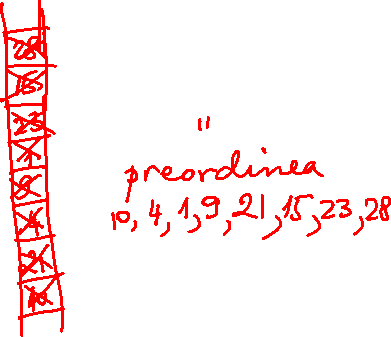 28
15
23
1
9
4
21
10
"
preordinea
10, 4, 1, 9, 21, 15, 23, 28